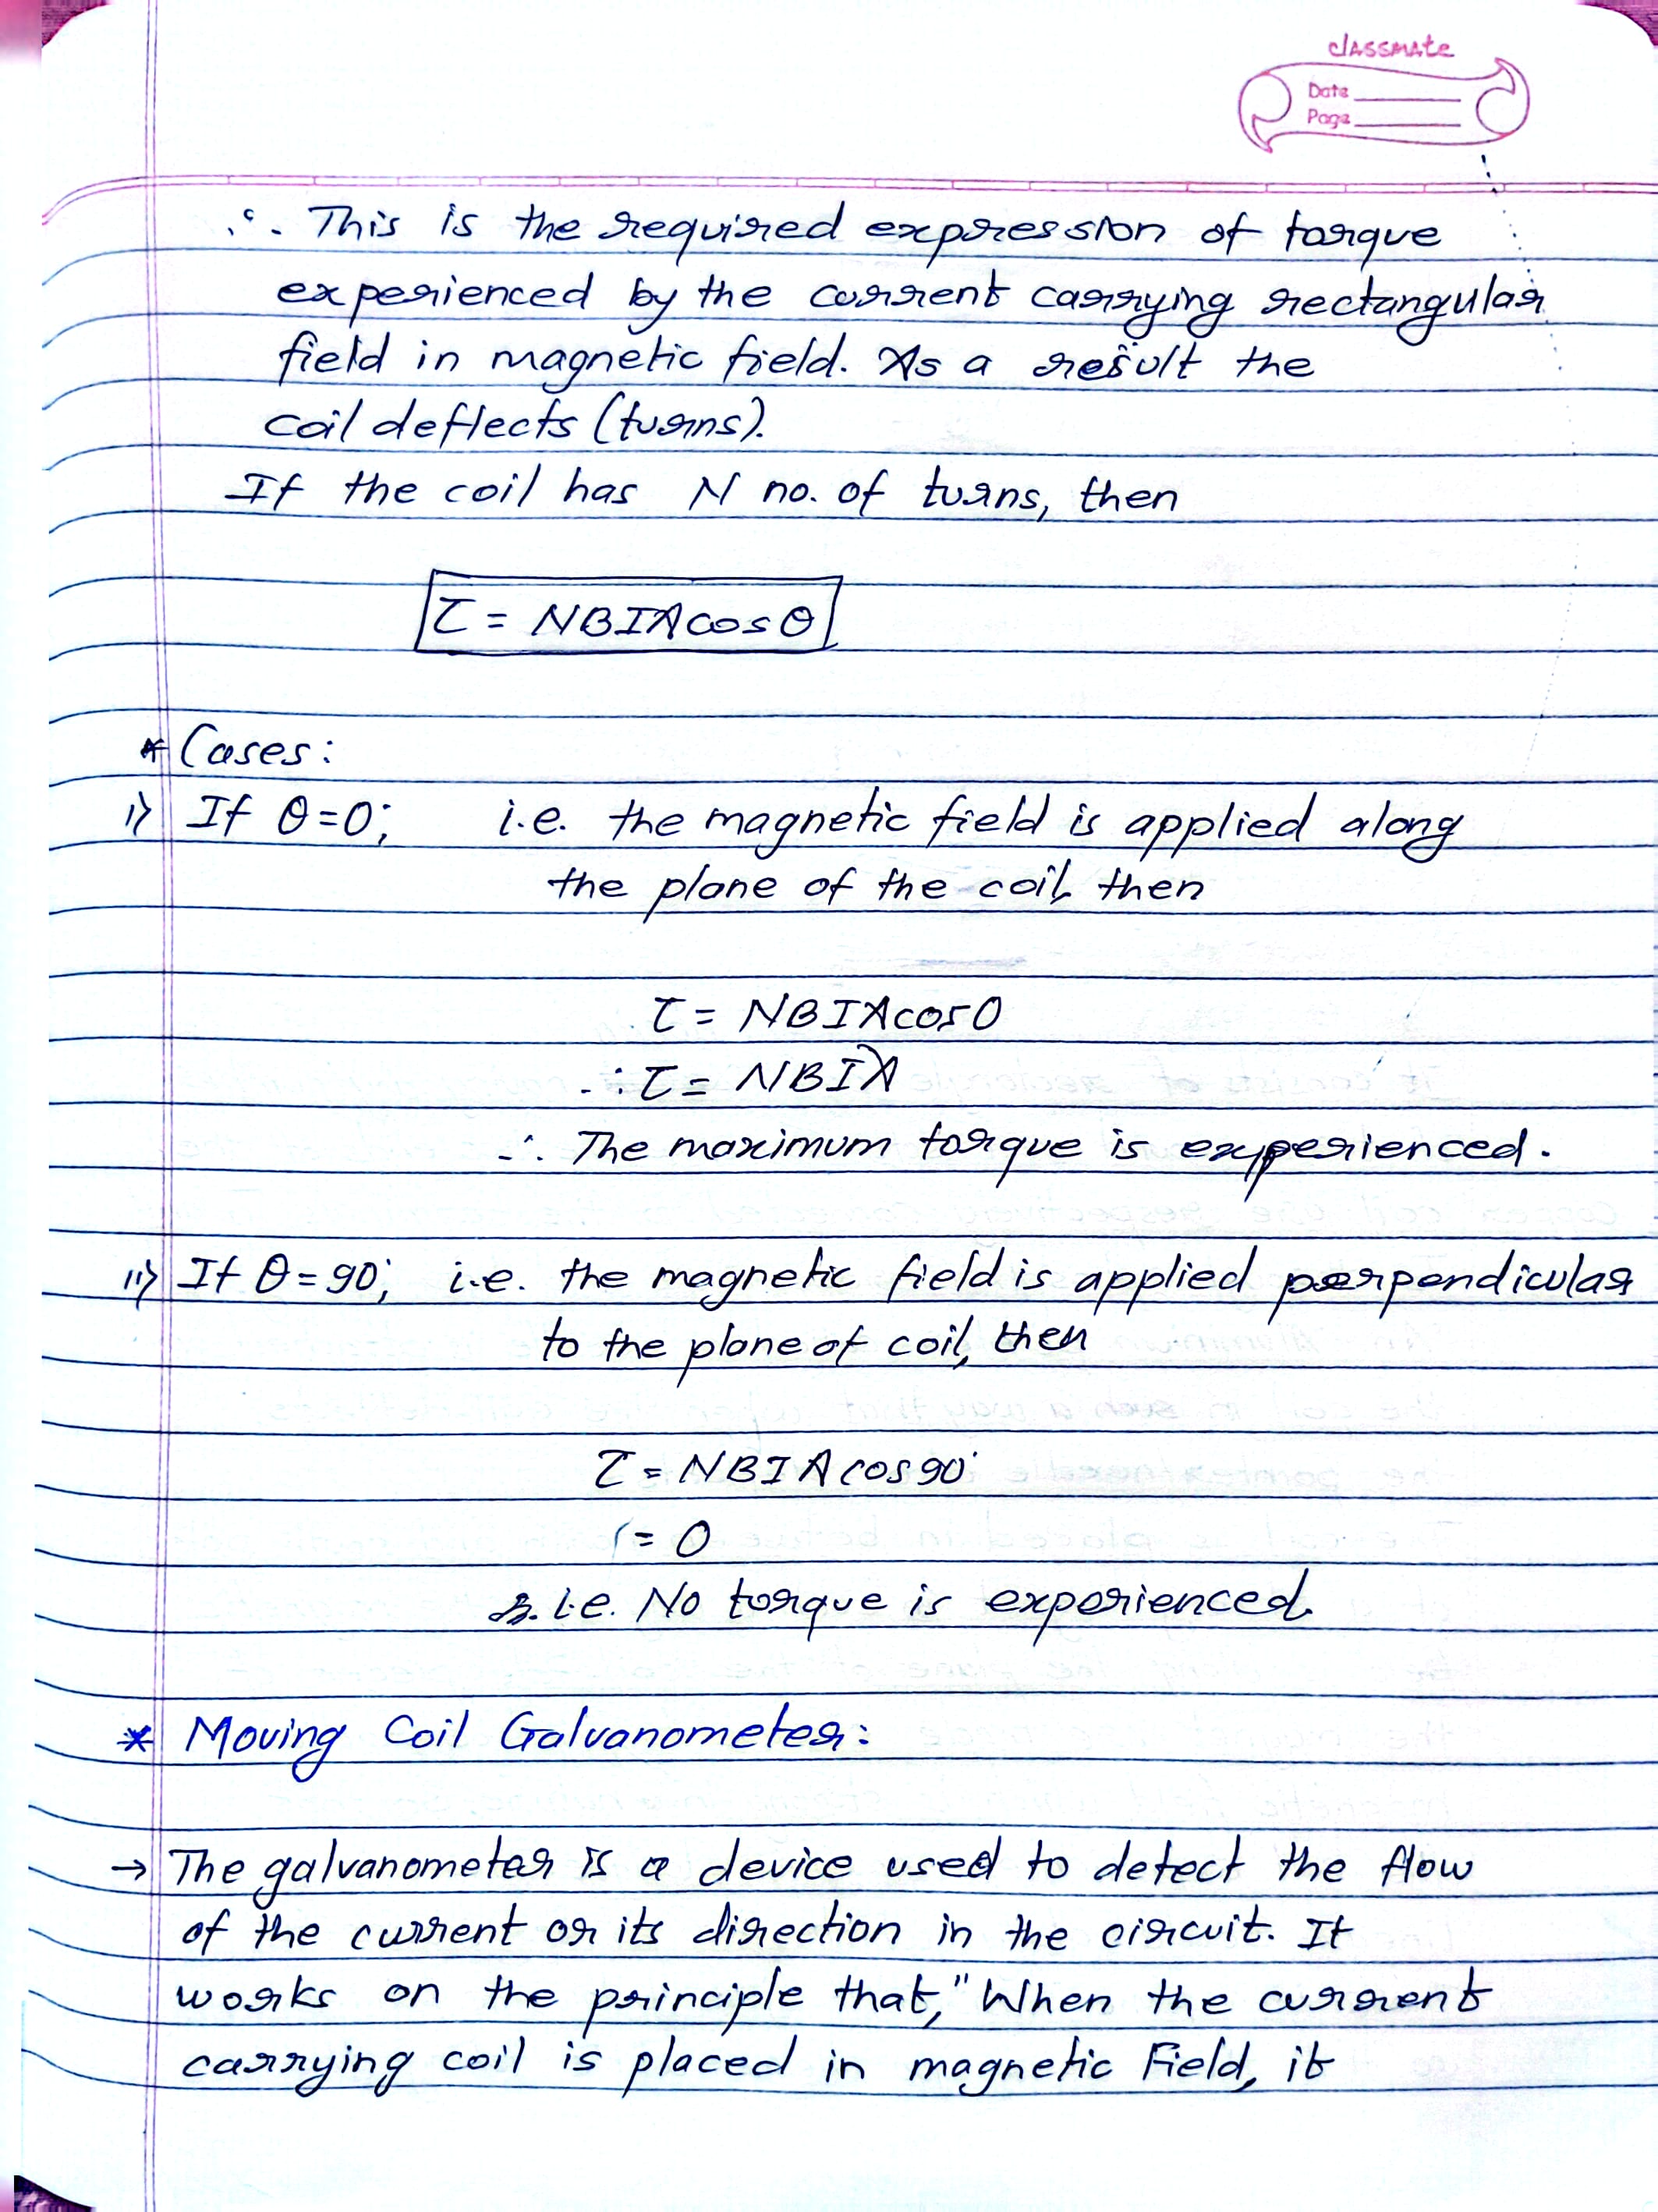 classmate
Date
Page
∴ This is the required expression of torque
experienced by the current carrying rectangular
field in magnetic field. As a result the
coil deflects (turns).
If the coil has N no. of turns, then
τ = NBIAcosθ
* Cases:
i) If θ=0; i.e. the magnetic field is applied along
the plane of the coil then
τ = NBIAcos0
∴ τ = NBIA
∴ The maximum torque is experienced.
ii) If θ=90; i.e. the magnetic field is applied perpendicular
to the plane of coil, then
τ = NBIAcos90°
= 0
i.e. No torque is experienced.
* Moving Coil Galvanometer:
→ The galvanometer is a device used to detect the flow
of the current or its direction in the circuit. It
works on the principle that, "When the current
carrying coil is placed in magnetic Field, it